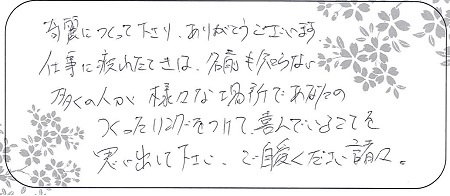 奇麗につくって下さり、ありがとうございます。
仕事に疲れたときは、名前も知らない
多くの人が様々な場所であなたの
つくったリングをつけて、喜んでいることを
思い出して下さい。ご自愛ください